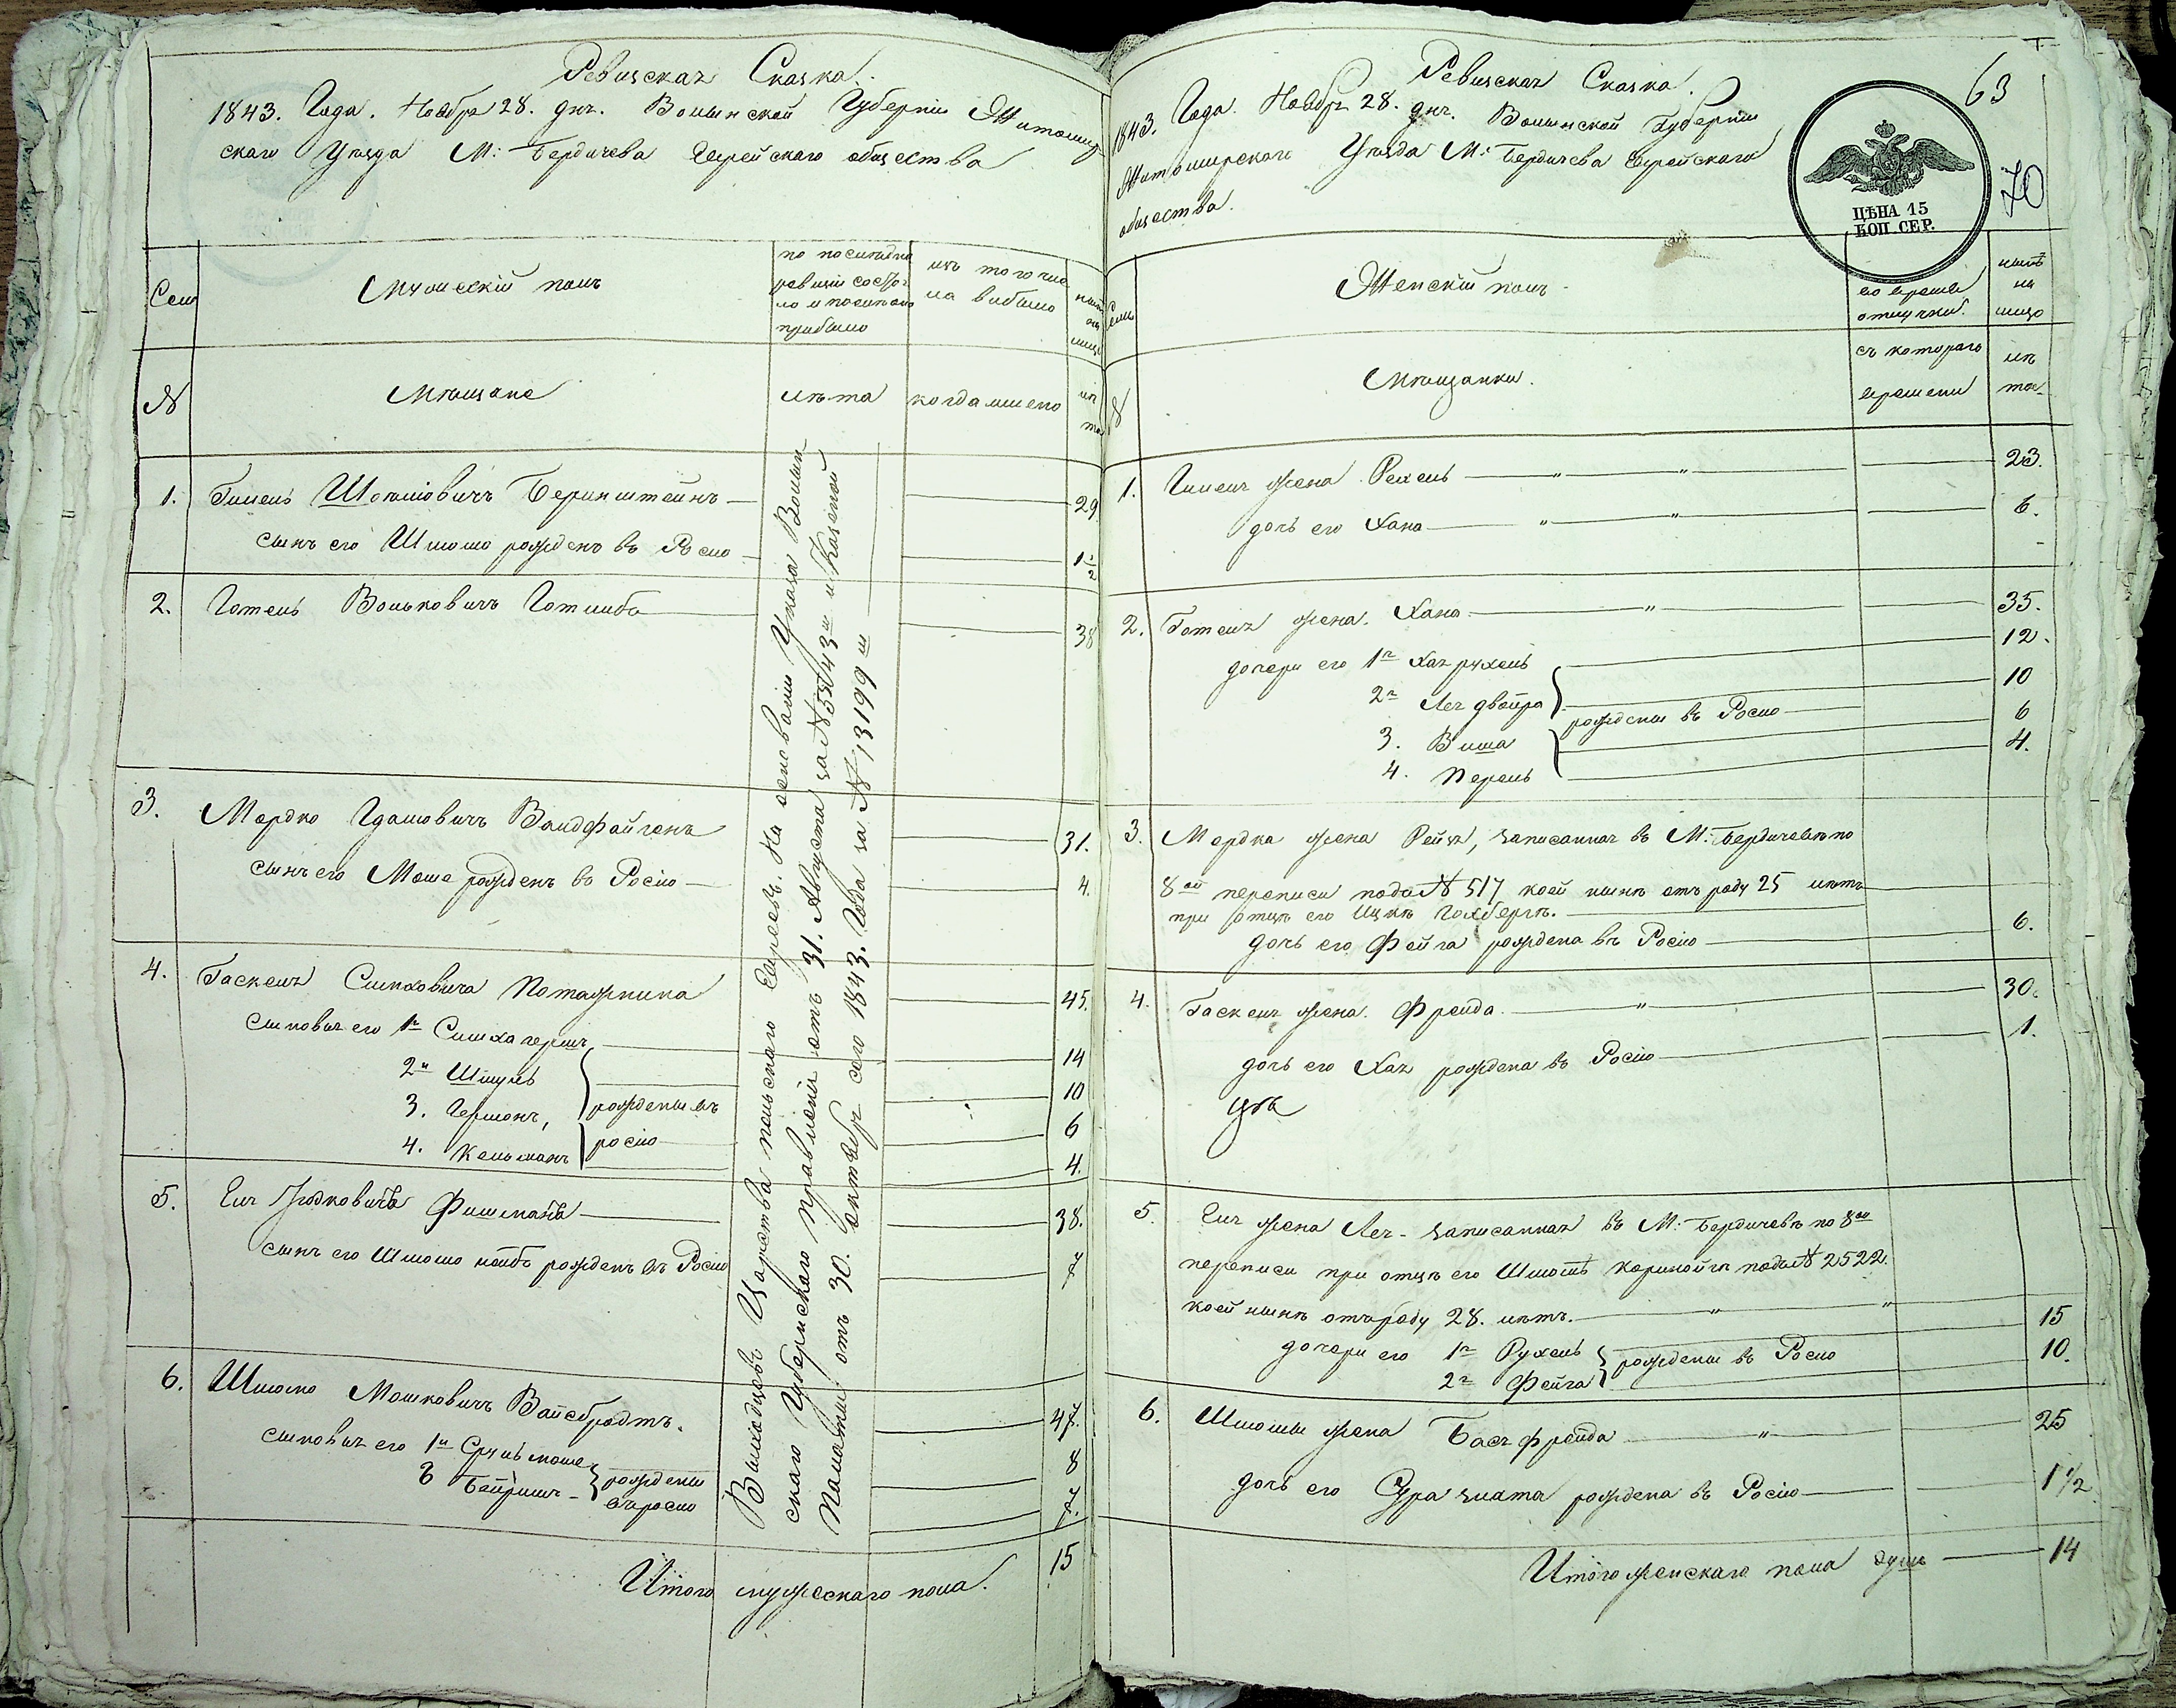 Ревизская Сказка.
1843. Года. Ноября 28. дня. Волынской Губернии Житомир
скаго Уезда М: Бердичева Еврейскаго общества
Сем
Мужескій полъ
по последней
ревизіи состоя
ло и после того
прибыло
изъ того чис
ла выбыло
ныне
на
лицо
№
Мѣщане
лѣта
когда именно
лѣ
та
1. Гимель Шоломовичъ Беринштейнъ 29.
сынъ его Шлиомо рожденъ въ Росіи 1 1/2
2. Готель Вольковичъ Готлиба 38
3. Мордко Гдаловичъ Вандфайгенъ 31.
сынъ его Моше рожденъ въ Росіи 4.
4. Гаскель Симховича Поташника 45.
сыновья его 1й Симха гершъ 14
2й Шмуль 10
3. Гершонъ, рождены въ 6
4. Кельманъ росіи 4.
5. Еля Юдковичъ Фишманъ 38.
сынъ его Шлиомо рожденъ въ Росіи 7
6. Шлиомо Мошковичъ Вайсбродтъ. 47.
сыновья его 1й Сруль моше рождены 8
2 Бейришъ въ росіи 7.
Итого мужескаго пола. 15
Выходцевъ Царства польскаго Евреевъ. На основаніи Указа Волын
скаго Губернскаго правленія отъ 31. Августа за № 55743м и Казенной
Палаты отъ 30. октября сего 1843. Года за № 13199м
63
70
ЦѢНА 15
КОП. СЕР.
Ревизская Сказка.
1843. Года. Ноября 28. дня. Волынской Губерніи
Житомирскаго Уезда М: Бердичева Еврейскаго
общества.
Семь
Женскій полъ
во временной
отлучкѣ.
нынѣ
на
лицо
№
Мѣщанки.
съ котораго
времени
лѣ
та
1. Гимеля жена Рехель " " 23.
дочь его Хана " " 6.
2. Готеля жена. Хана " 35.
дочери его 1я Хая рухель 12.
2я Лея двойра 10
рождены въ Росіи
3. Виша 6
4. Перель 4.
3. Мордка жена Рейзя, записанная въ М: Бердичевѣ по
8ой переписи подъ № 517 коей нынѣ отъ роду 25 лѣтъ
при отцѣ его Ицкѣ Голдбергѣ.
дочь его Фейга рождена въ Росіи 6.
4. Гаскеля жена. Фрейда " 30.
дочь его Хая рождена въ Росіи 1.
5. Еля жена Лея - записанная въ М: Бердичевѣ по 8ой
переписи при отцѣ его Шлиомѣ подъ № 2522.
коей нынѣ отъ роду 28. лѣтъ. " "
дочери его 1я Рухель рождены въ Росіи 15
2я Фейга 10.
6. Шлиомы жена Бася фрейда " 25
дочь его Сура злата рождена въ Росіи 1 1/2
Итого женскаго пола душъ 14